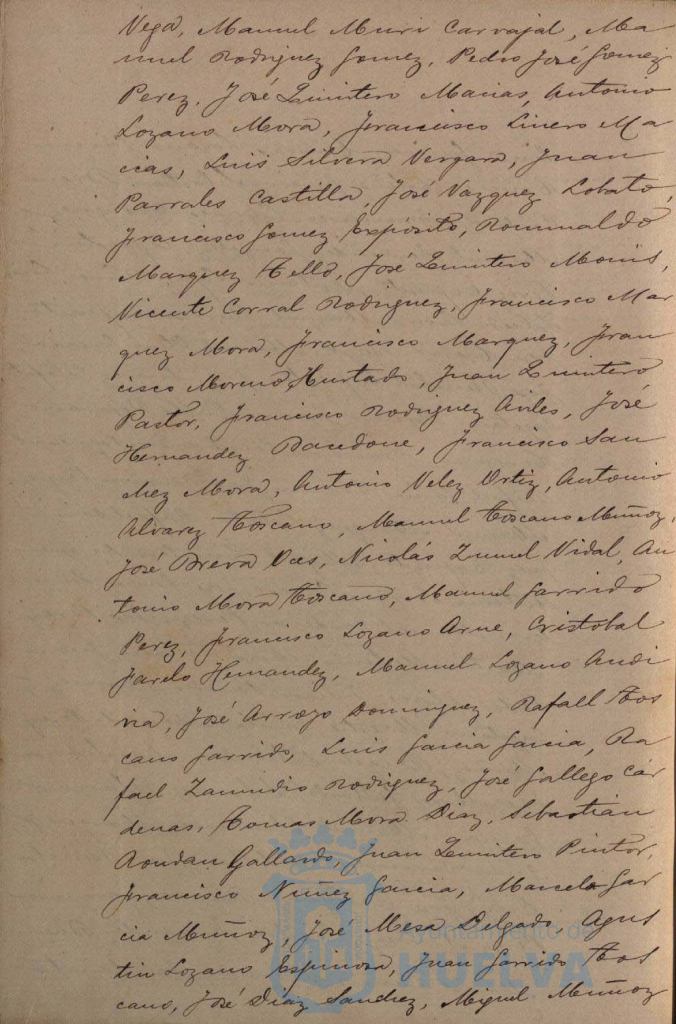 Vega, Manuel Muri Carvajal, Ma
nuel Rodriguez Gomez, Pedro José Gomez
Perez, José Quintero Macias, Antonio
Lozano Mora, Francisco Linero Ma
cias, Luis Silvera Vergara, Juan
Parrales Castilla, José Vazquez Lobato,
Francisco Gomez Expósito, Romualdo
Marquez Tello, José Quintero Monis,
Vicente Corral Rodriguez, Francisco Mar
quez Mora, Francisco Marquez, Fran
cisco Moreno Hurtado, Juan Quintero
Pastor, Francisco Rodriguez Aviles, José
Hernandez Francisco San
chez Mora, Antonio Velez Ortiz, Antonio
Alvarez Toscano, Manuel Toscano Muñoz,
José Brera Nicolás Zunel Vidal, An
tonio Mora Toscano, Manuel Garrido
Perez, Francisco Lozano Arne, Cristobal
Farelo Hernandez, Manuel Lozano Andi
via, José Arroyo Dominguez, Rafael Tos
cano Garrido, Luis Garcia Garcia, Ra
fael Zamudio Rodriguez, José Gallego Cár
denas, Tomas Mora Diaz, Sebastian
Roudan Gallardo, Juan Quintero Pintor,
Francisco Nuñez Garcia, Marcelo Gar
cia Muñoz, José Mesa Delgado, Agus
tin Lozano Espinosa, Juan Garrido Tos
cano, José Diaz Sanchez, Miguel Muñoz
Ayuntamiento de
HUELVA